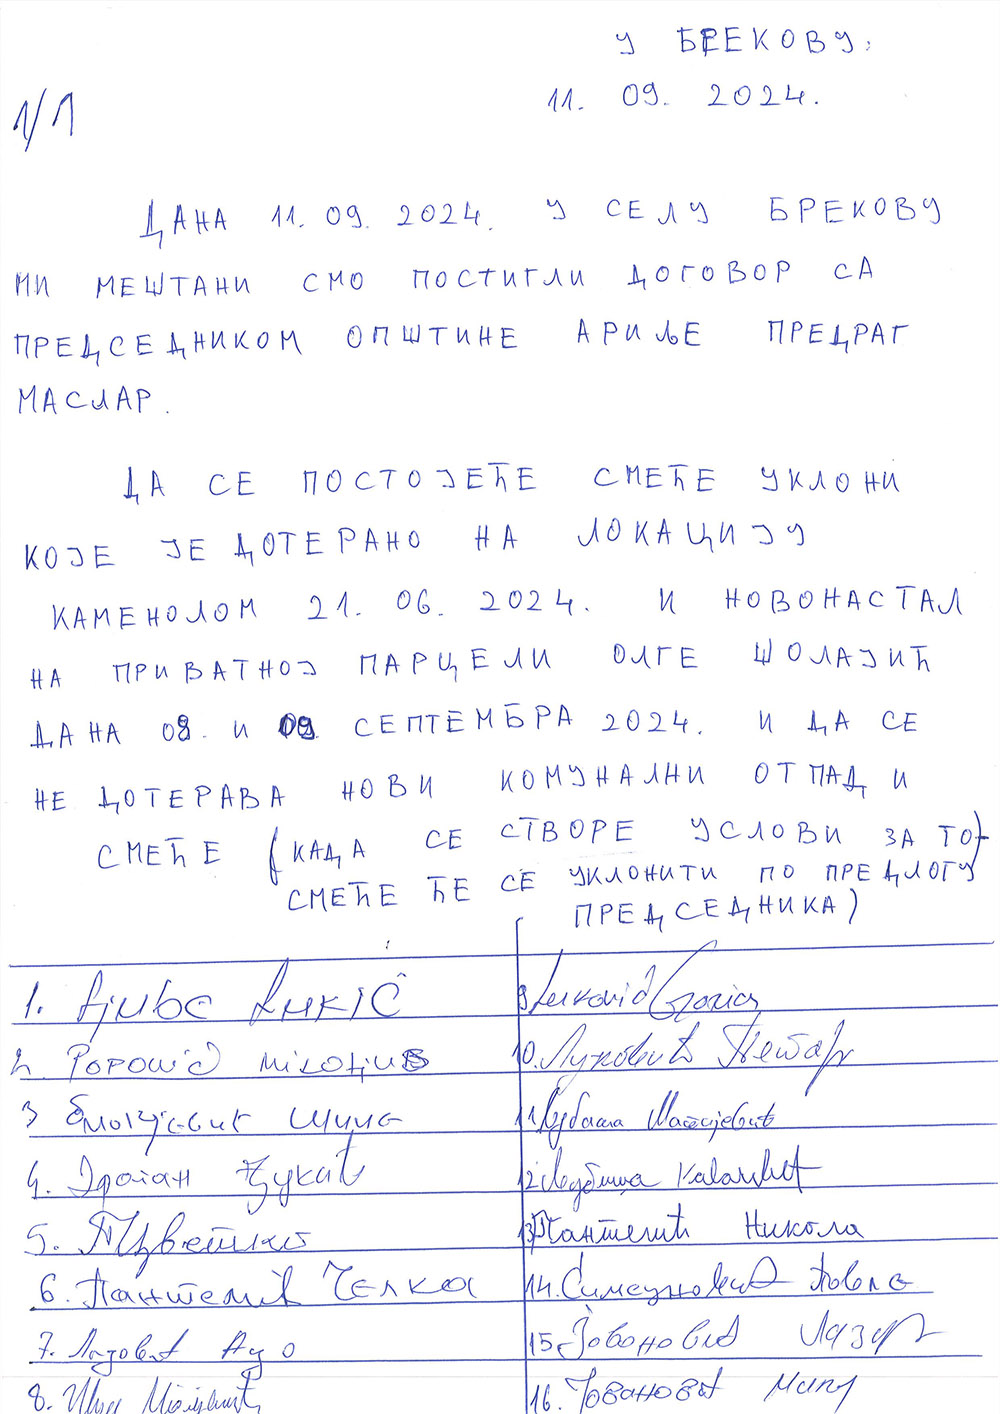 У БРЕКОВУ,
11. 09. 2024.
1/1
ДАНА 11. 09. 2024. У СЕЛУ БРЕКОВУ
МИ МЕШТАНИ СМО ПОСТИГЛИ ДОГОВОР СА
ПРЕДСЕДНИКОМ ОПШТИНЕ АРИЉЕ ПРЕДРАГ
МАСЛАР.
ДА СЕ ПОСТОЈЕЋЕ СМЕЋЕ УКЛОНИ
КОЈЕ ЈЕ ДОТЕРАНО НА ЛОКАЦИЈУ
КАМЕНОЛОМ 21. 06. 2024. И НОВОНАСТАЛ
НА ПРИВАТНОЈ ПАРЦЕЛИ ОЛГЕ ШОЛАЈИЋ
ДАНА 08. И 09. СЕПТЕМБРА 2024. И ДА СЕ
НЕ ДОТЕРАВА НОВИ КОМУНАЛНИ ОТПАД И
СМЕЋЕ (КАДА СЕ СТВОРЕ УСЛОВИ ЗА ТО
СМЕЋЕ ЋЕ СЕ УКЛОНИТИ ПО ПРЕДЛОГУ
ПРЕДСЕДНИКА)
1.
2.
3
4.
5.
6. Пантелић
7.
8.
9
10. Луковић Петар
11
12
13 Пантелић Никола
14.
15 Јовановић Лазар
16. Јовановић